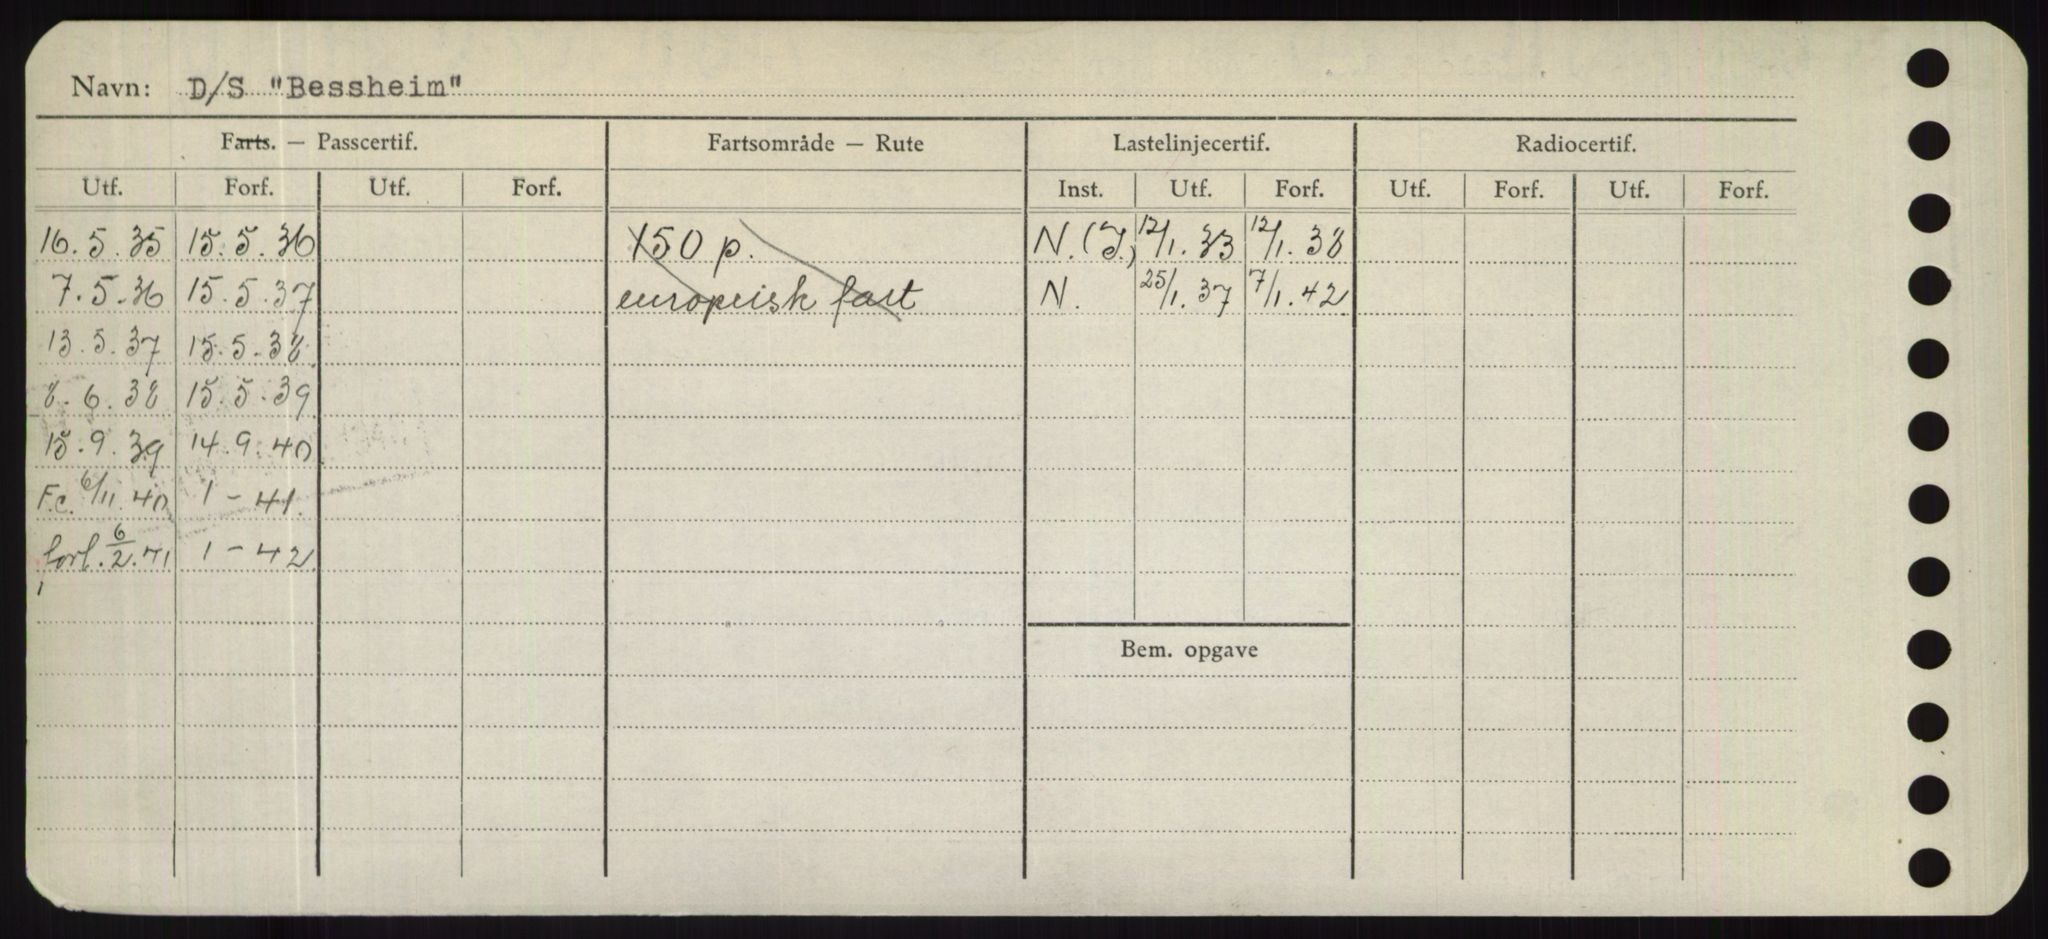 Navn: D/S "Bessheim"
Farts. — Passcertif. Fartsområde — Rute Lastelinjecertif. Radiocertif.
Utf. Forf. Utf. Forf. Inst. Utf. Forf. Utf. Forf. Utf. Forf.
16.5.35 15.5.36 150 p. N.(I.) 12/1.33 12/1.38
7.5.36 15.5.37 europeisk fart N. 25/1.37 7/1.42
13.5.37 15.5.38
8.6.38 15.5.39
15.9.39 14.9.40
F.c. 6/11.40 1-41.
forl. 6/2.41 1-42
Bem. opgave